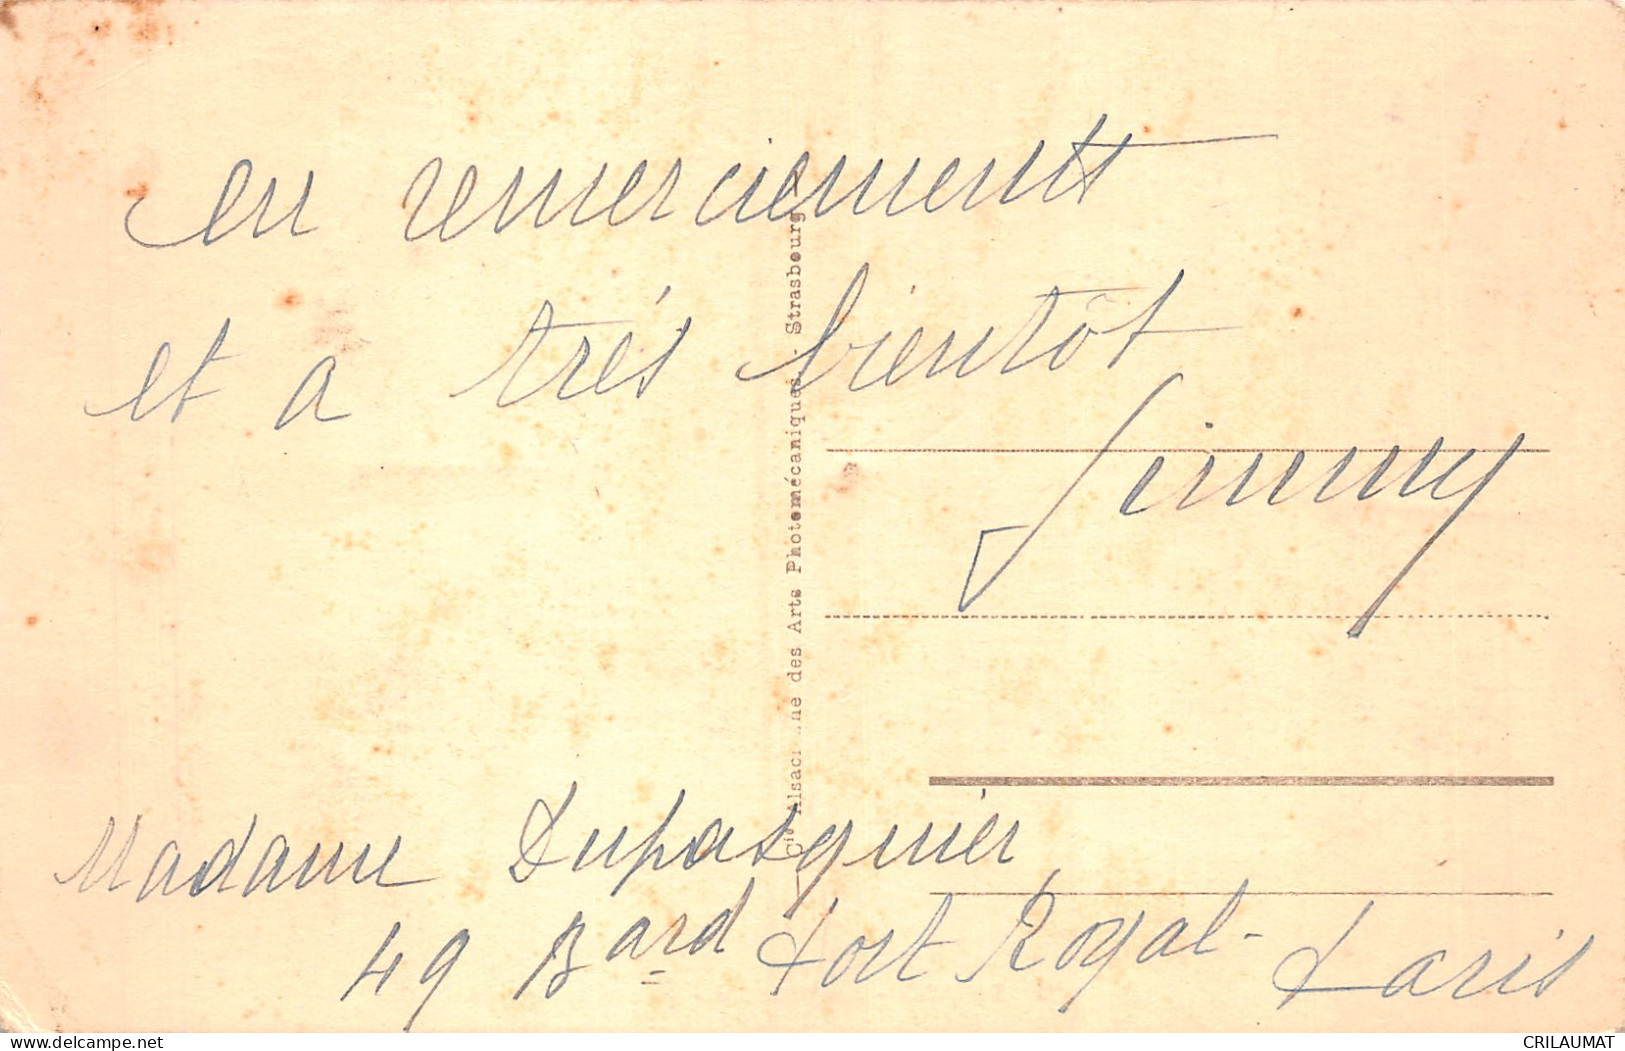 en remerciements
et a trés bientôt
Jimmy
Cie Alsacienne des Arts Photomécaniques - Strasbourg
Madame Dupasquier
49 Bard Port Royal - Paris
www.delcampe.net
CRILAUMAT